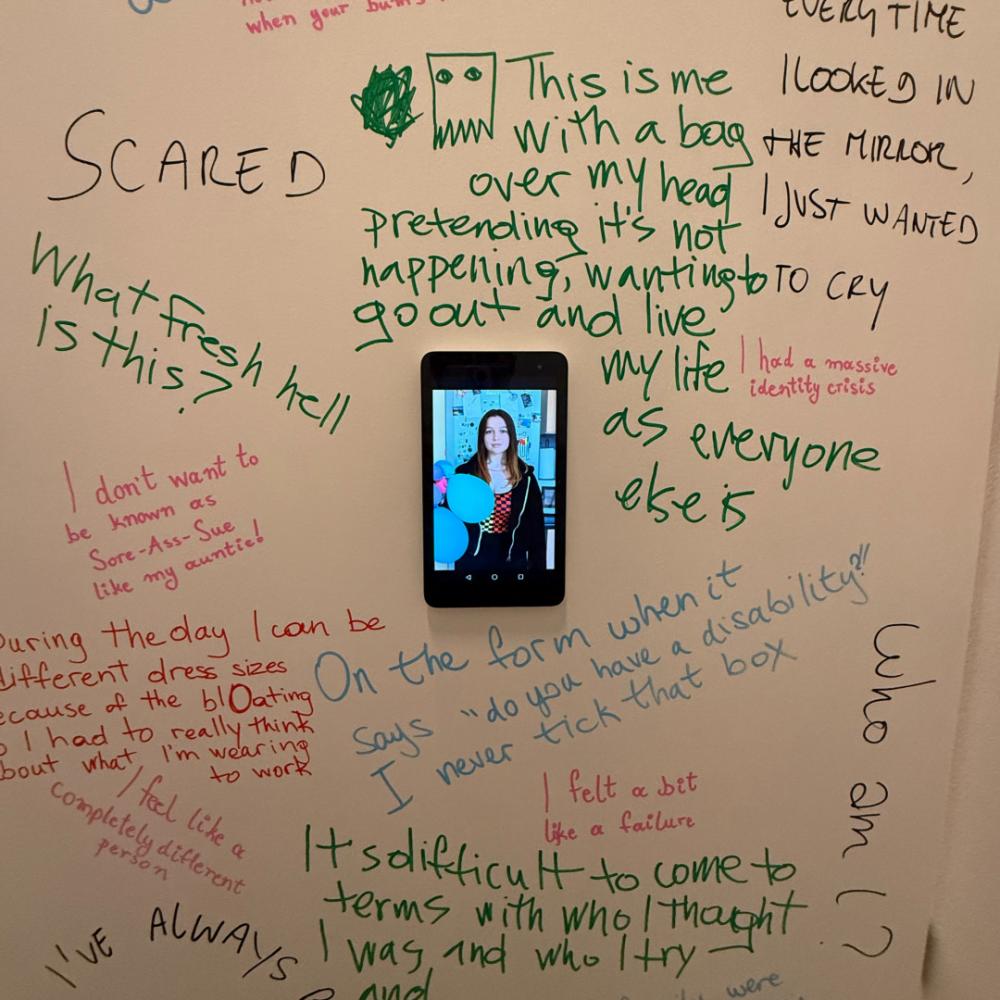 when your bum's
EVERY TIME
I LOOKED IN
THE MIRROR,
I JUST WANTED
TO CRY
This is me
with a bag
over my head
pretending it's not
happening, wanting to
go out and live
my life
as everyone
else is
SCARED
What fresh hell
is this?
I had a massive
identity crisis
I don't want to
be known as
Sore-Ass-Sue
like my auntie!
During the day I can be
different dress sizes
because of the blOating
so I had to really think
about what I'm wearing
to work
On the form when it
says "do you have a disability?"
I never tick that box
Who am I?
I feel like a
completely different
person
I felt a bit
like a failure
Its difficult to come to
terms with who I thought
I was, and who I try
and
I'VE ALWAYS
were